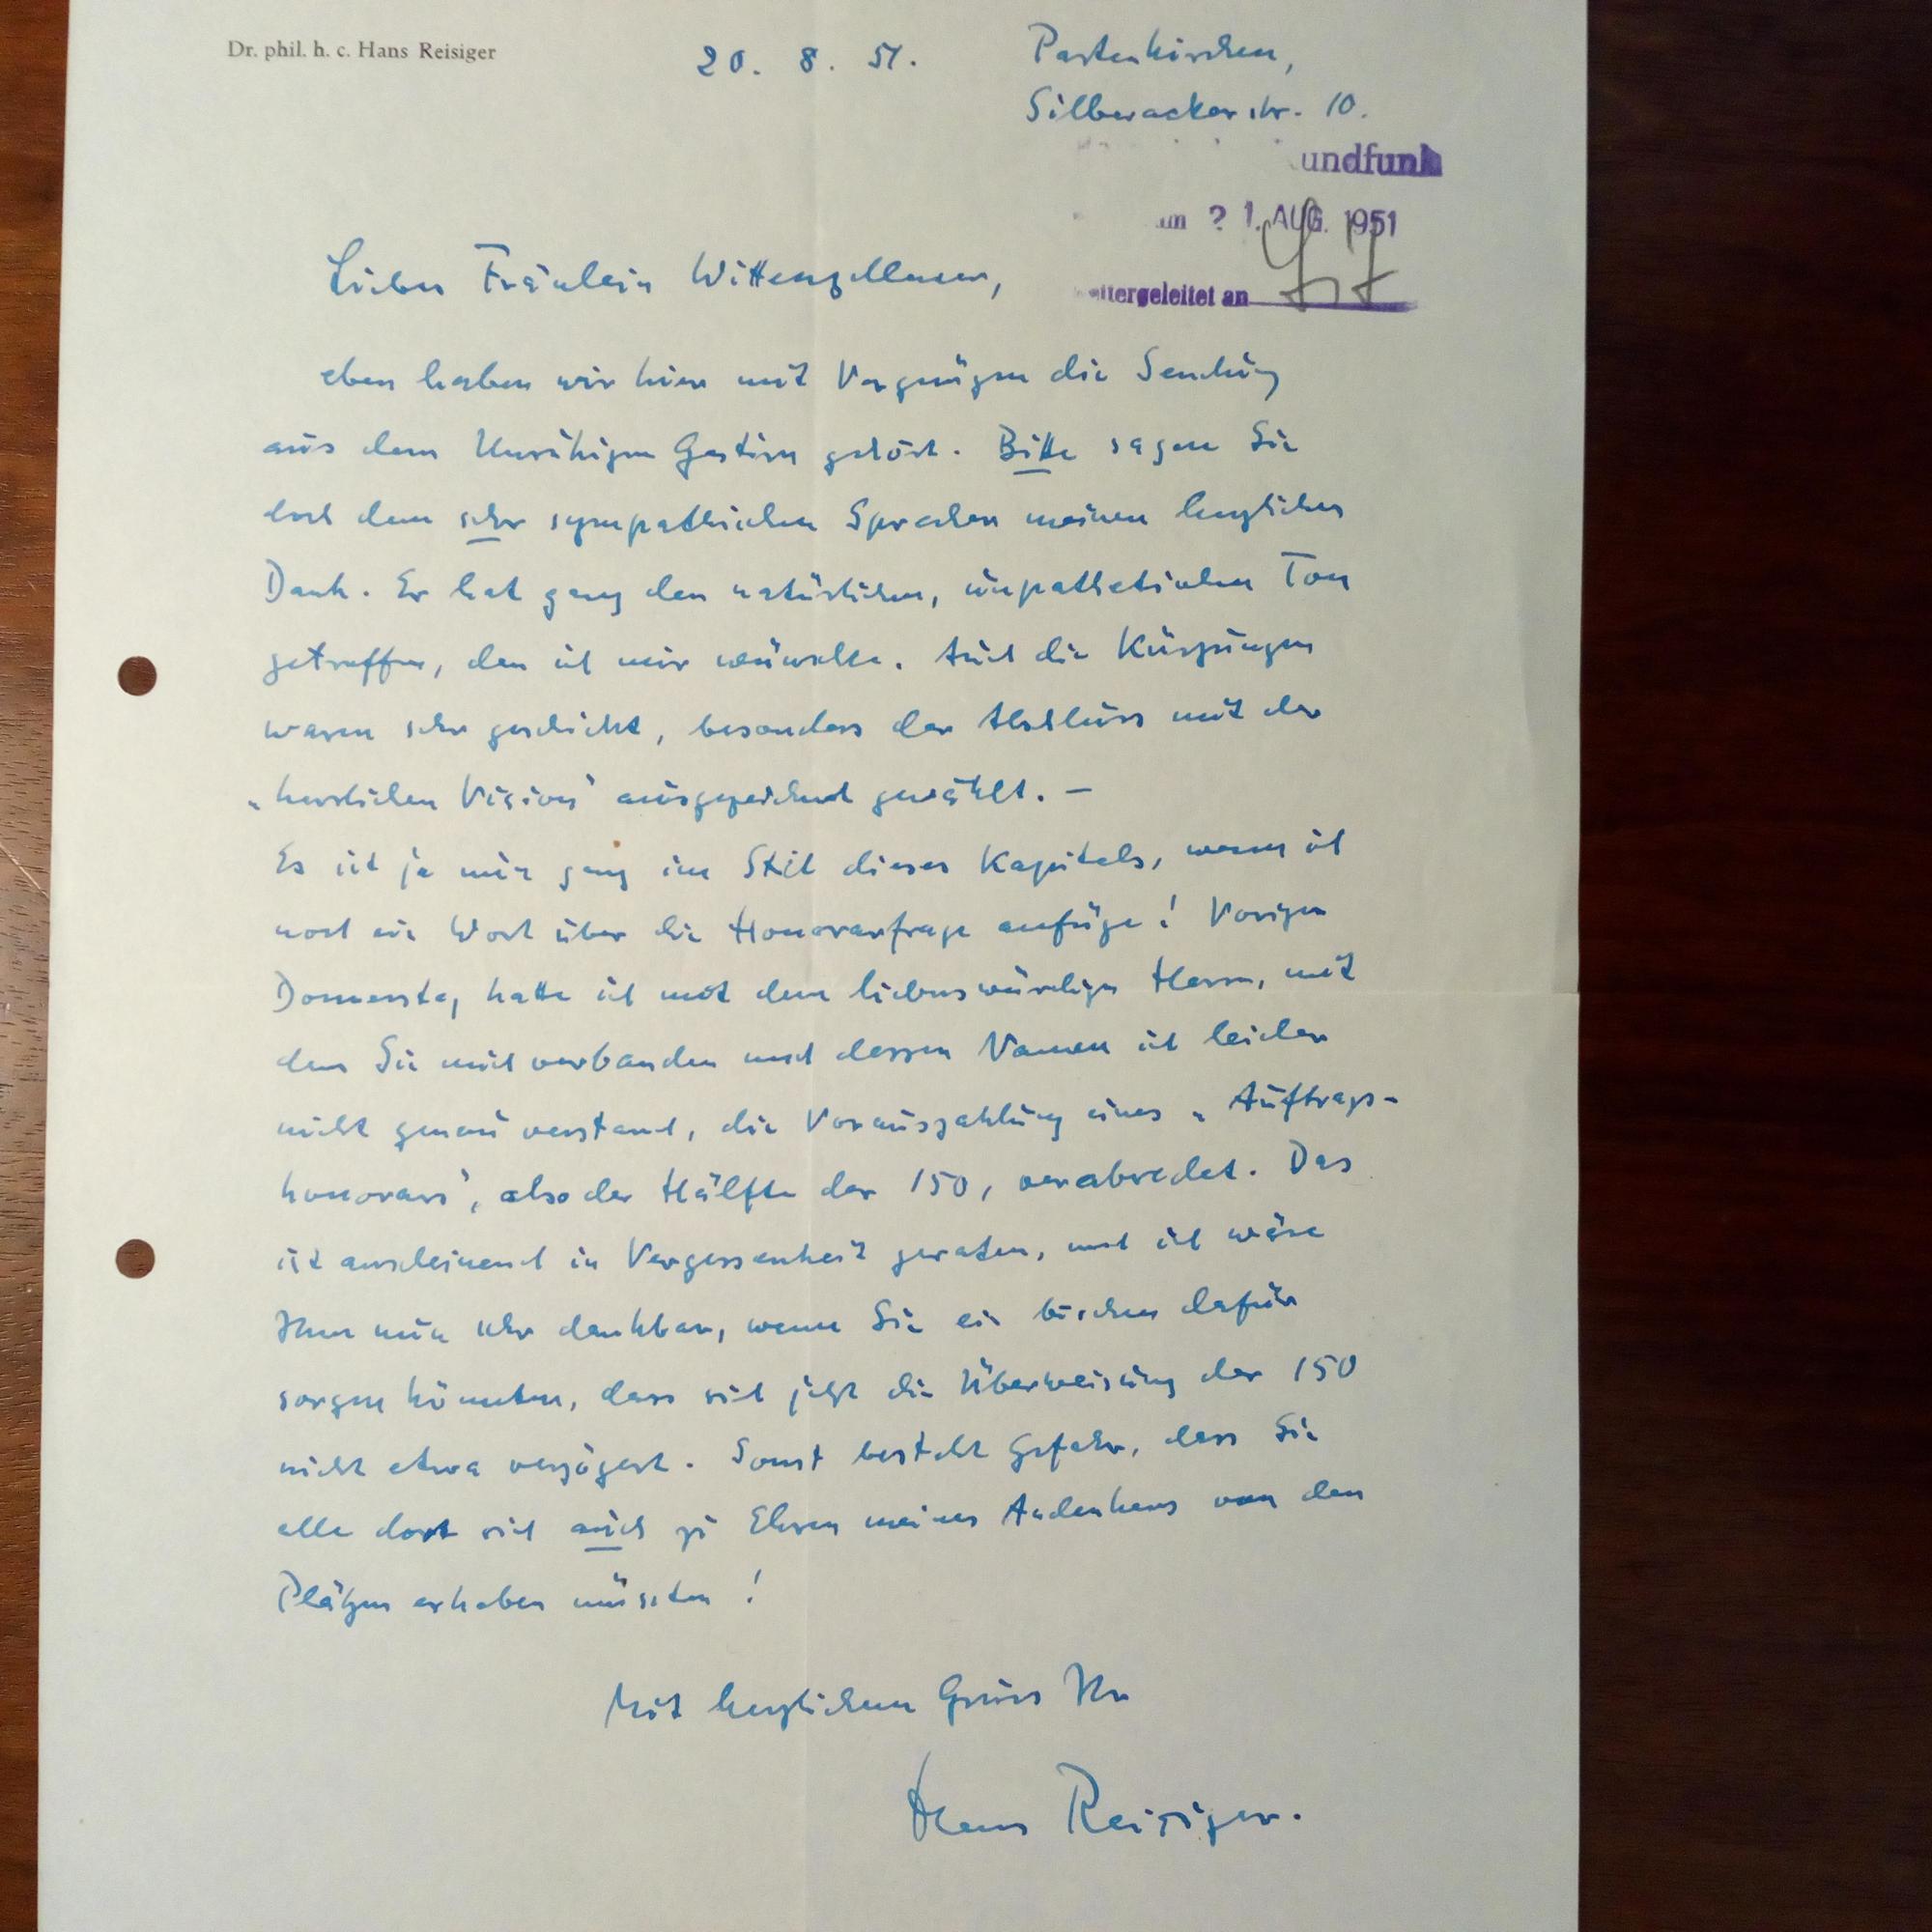 Dr. phil. h. c. Hans Reisiger
20. 8. 51.
Partenkirchen,
Silberackerstr. 10.
undfunk
1. AUG. 1951
eitergeleitet an
Liebes Fräulein Wittenzellner,
eben haben wir hier mit Vergnügen die Sendung
aus dem Unruhigen Gestirn gehört. Bitte sagen Sie
doch dem sehr sympathischen Sprecher meinen herzlichen
Dank. Er hat ganz den natürlichen, unpathetischen Ton
getroffen, den ich mir wünschte. Auch die Kürzungen
waren sehr geschickt, besonders der Abschluss mit der
„herrlichen Vision" ausgezeichnet gewählt. –
Es ist ja nur ganz im Stil dieses Kapitels, wenn ich
noch ein Wort über die Honorarfrage anfüge! Vorigen
Donnerstag hatte ich mit dem liebenswürdigen Herrn, mit
dem Sie mich verbanden und dessen Namen ich leider
nicht genau verstand, die Vorauszahlung eines „Auftrags-
honorars", also der Hälfte der 150, verabredet. Das
ist anscheinend in Vergessenheit geraten, und ich wäre
Ihnen nun sehr dankbar, wenn Sie ein bischen dafür
sorgen könnten, dass sich jetzt die Überweisung der 150
nicht etwa verzögert. Sonst besteht Gefahr, dass Sie
alle dort sich auch zu Ehren meines Andenkens von den
Plätzen erheben müssten!
Mit herzlichem Gruss Ihr
Hans Reisiger.